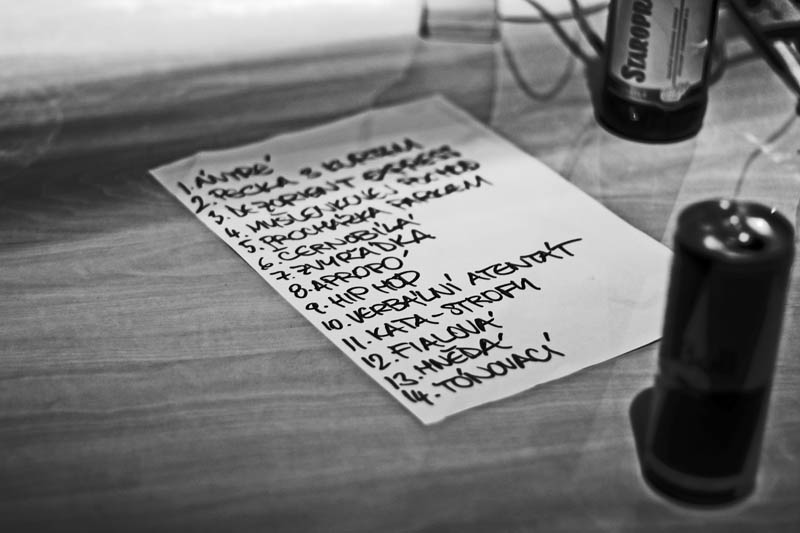 STAROPR
1. ANTRÉ
2. PECKA S KURTEM
3. DEZORIENT EXPRESS
4. MYŠLENKOVEJ POCHOD
5. PROCHÁZKA PARKEM
6. ČERNOBÍLÁ
7. ZVYRÁDKA
8. APROPÓ
9. HIP HOP
10. VERBÁLNÍ ATENTÁT
11. KATA-STROFY
12. FIALOVÁ
13. HNĚDÁ
14. TÓNOVACÍ